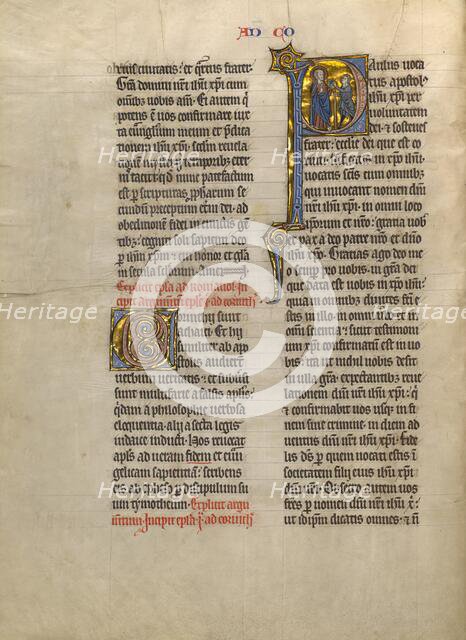 AD CO
obrius civitatis · et qrtus frater ·
Gra domini nri ihu xpi cum
omnibus vobis amen · Ei autem q̇
potens ē vos confirmare iux
ta euangelium meum et p̄dica
tionem ihu xpi · scdm revela
taciti · qd nunc patefactum
est per scripturas ppharum se
cundum preceptum eterni dei · ad
obeditionē fidei in cunctis gē
tibȝ · cogniti soli sapienti deo
p ihm xpm · cui honor et gla
in secula seculorum · Amen
Explicit epla ad romanos · In
cipit argumentū eple p̄ ad corinth
Corinthii sunt
achaici · Et hii
similiter ab apo
stolis audierūt
verbum veritatis · et subūsi
sunt multifarie a falsis aplis ·
qdam a philosophie verbosa
eloquentia · alii a secta legis
iudaice inducti · Hos revocat
apls ad veram fidem et euā
gelicam sapientiā · scribens
eis ab epheso p discipulum su
um tymotheum · Explicit argu
mentum · Incipit epla p̄ ad corinth
Paulus voca
tus apostol
ihu xpi per
voluntatem
dei · et sostenes
frater · ecclie dei que est co
vocatis scis cum omnibus
qui invocant nomen dni
nri ihu xpi · in omni loco
ipsorum et nostro · gratia vob
et pax a deo patre nro et dno
ihu xpo · Gratias ago deo me
o semp pro vobis · in gra dei
que data est vobis in xpo ihu
quia in omnibus divites facti
estis in illo · in omni verbo et
in omni scientia · sicut testimoni
um xpi confirmatum est in vo
bis · ita ut nichil vobis desit
in ulla gra · expectantibus reve
lationem dni nri ihu xpi · q̇
et confirmabit vos usq̇ in fi
nem sine crimine · in diem ad
ventus dni nri ihu xpi · Fide
lis ds p quem vocati estis in
societatem filii eius ihu xpi
dni nri · Obsecro autem vos
frēs p nomen dni nri ihu xi ·
ut idipm dicatis omnes · et nō
Heritage Images